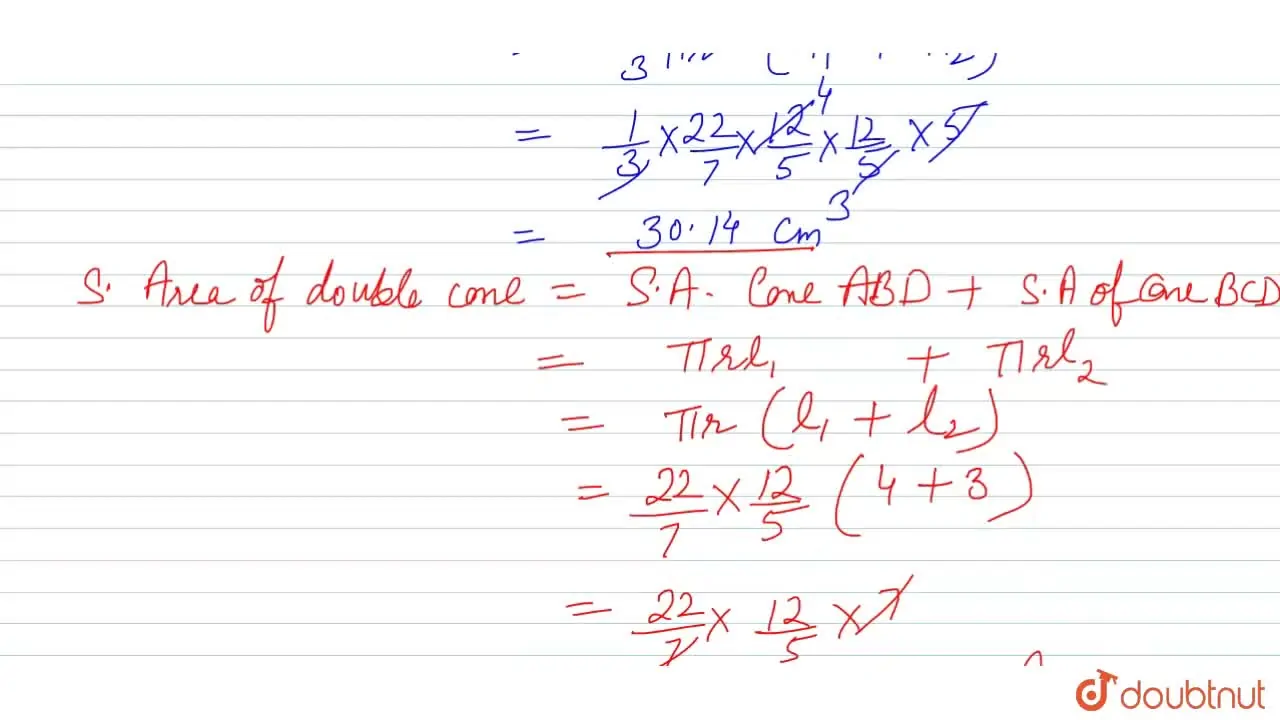 = 1/3 × 22/7 × 12/5 4 × 12/5 × 5
= 30.14 cm³
S. Area of double cone = S.A. Cone ABD + S.A of Cone BCD
= πrl₁ + πrl₂
= πr (l₁ + l₂)
= 22/7 × 12/5 (4 + 3)
= 22/7 × 12/5 × 7
doubtnut